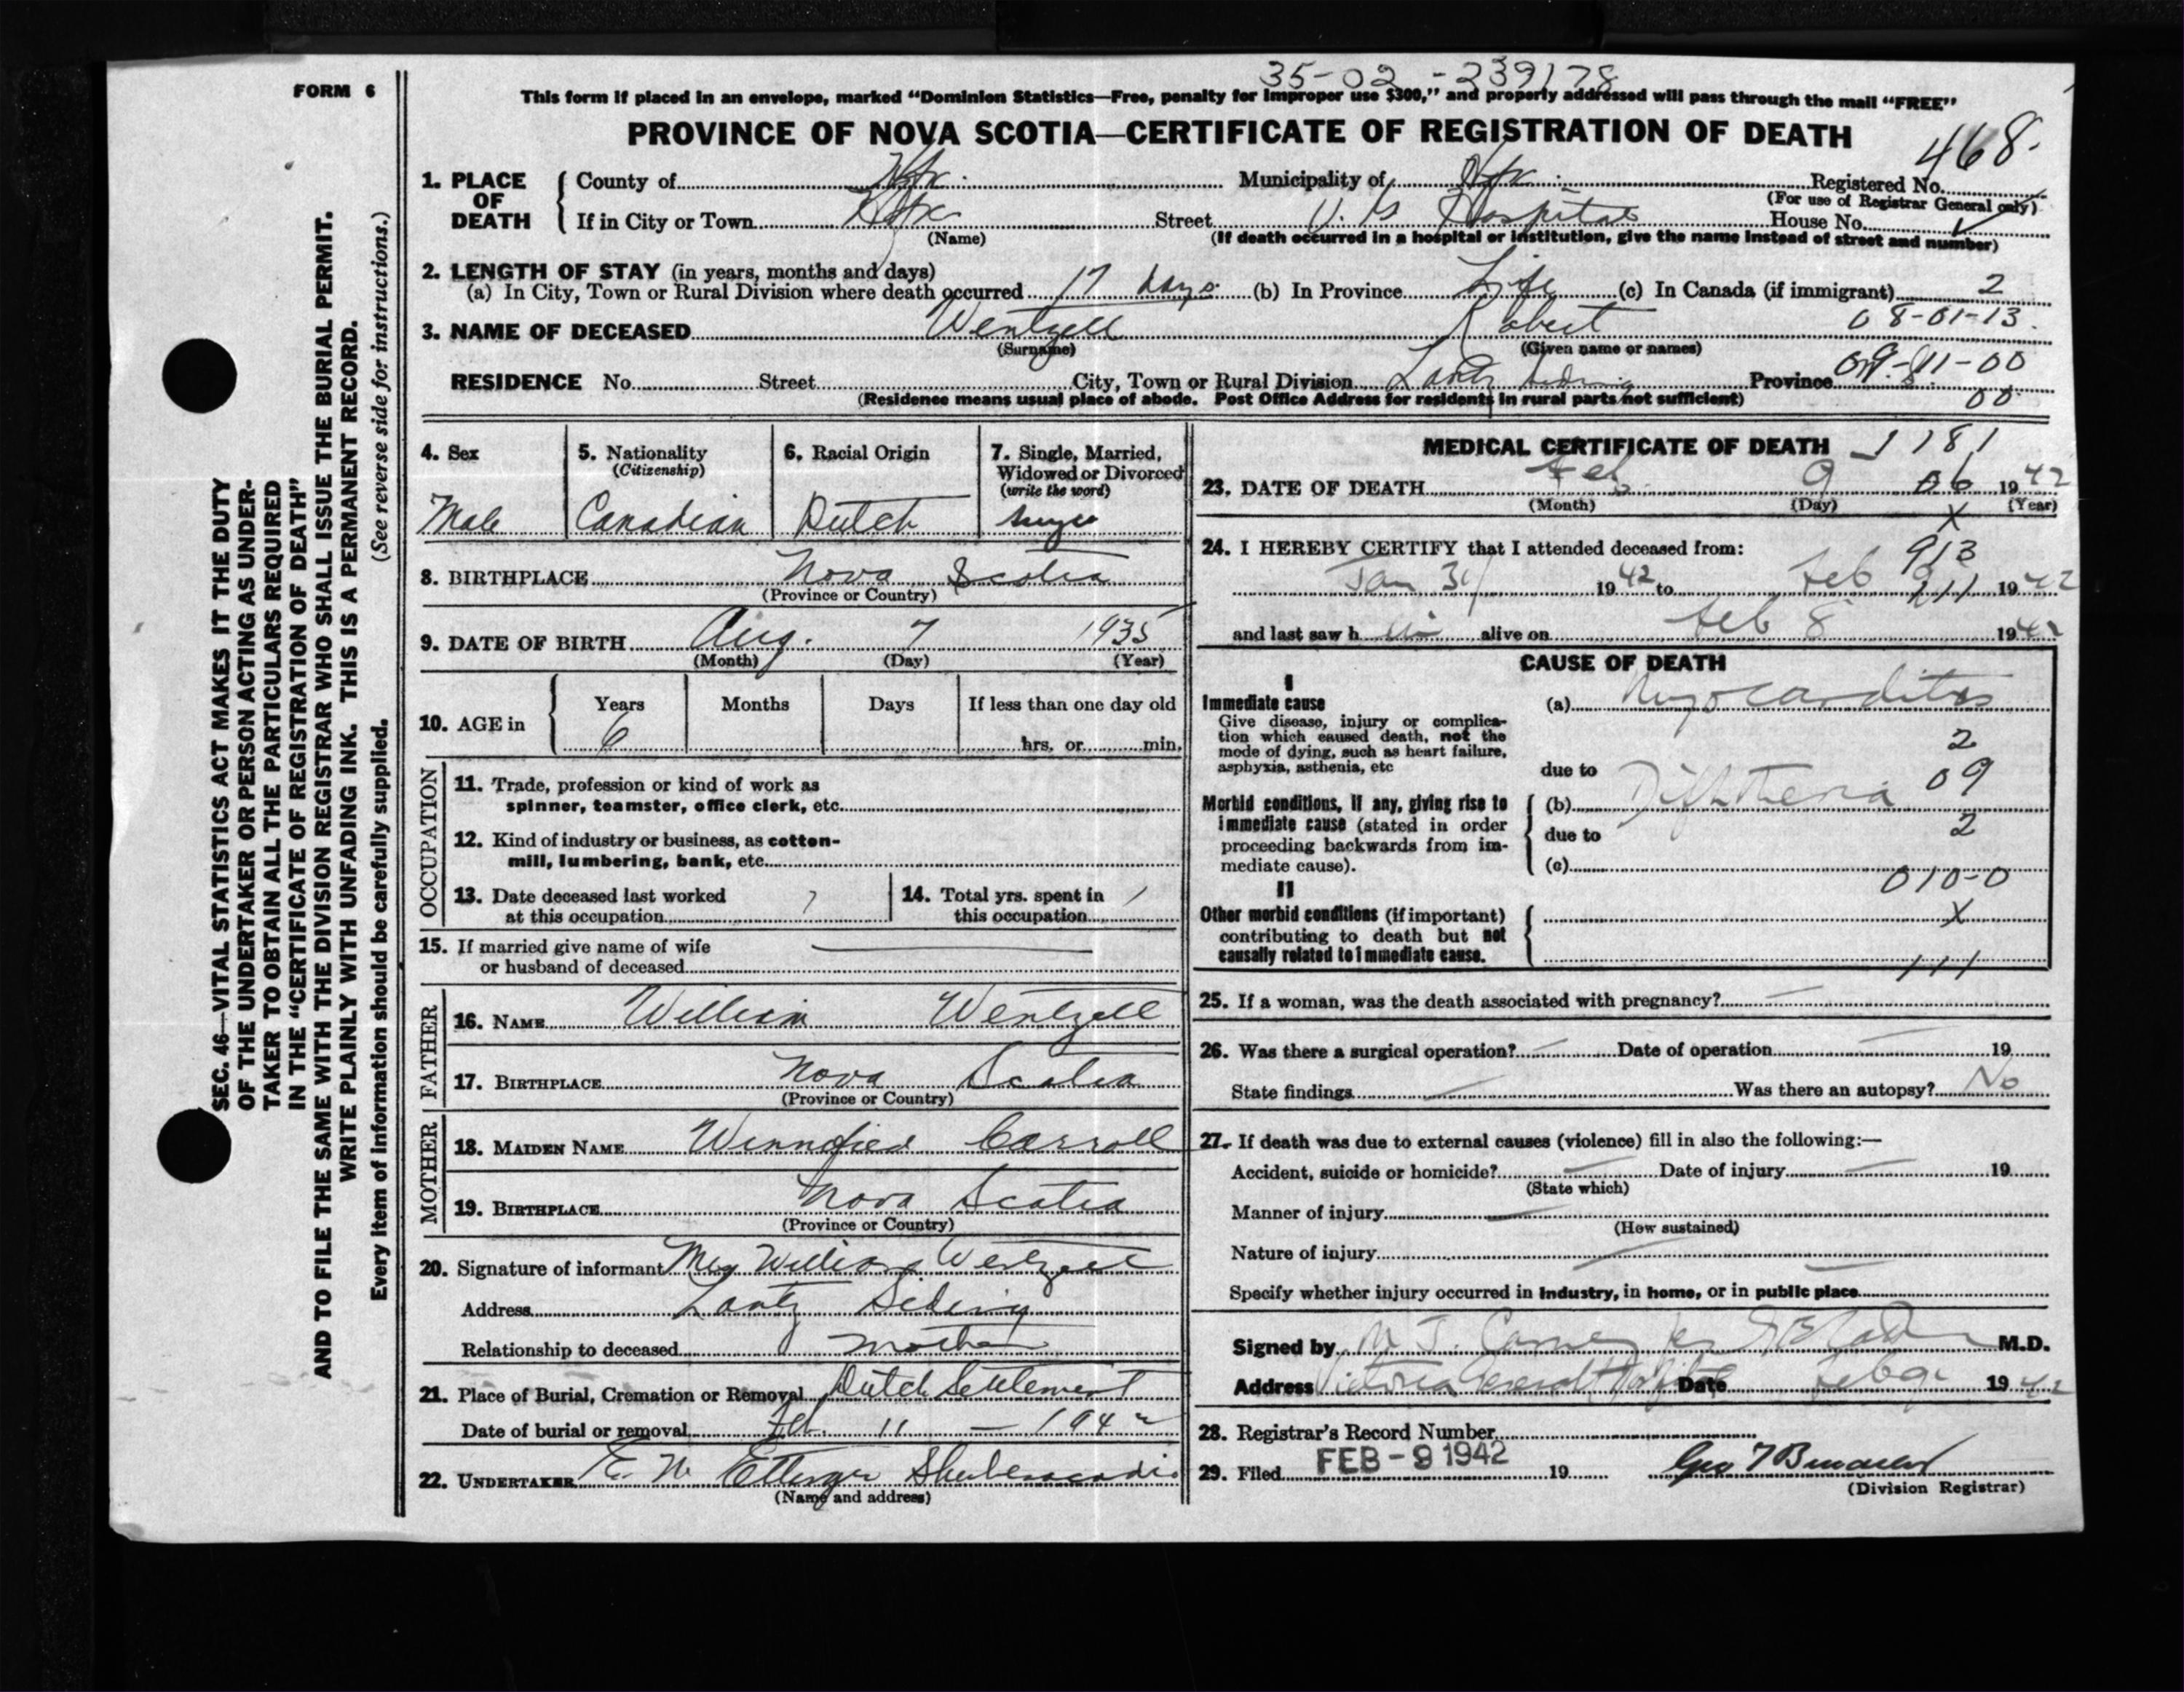 35-02-239178
FORM 6
This form if placed in an envelope, marked “Dominion Statistics—Free, penalty for improper use $300,” and properly addressed will pass through the mail “FREE”
PROVINCE OF NOVA SCOTIA—CERTIFICATE OF REGISTRATION OF DEATH
468.
1. PLACE OF DEATH
County of Hfx. Municipality of Hfx. Registered No.
(For use of Registrar General only)
If in City or Town Hfx Street V. G Hospital House No.
(Name) (If death occurred in a hospital or institution, give the name instead of street and number)
2. LENGTH OF STAY (in years, months and days)
(a) In City, Town or Rural Division where death occurred 17 days (b) In Province Life (c) In Canada (if immigrant) 2
3. NAME OF DECEASED Wentzell Robert 08-01-13.
(Surname) (Given name or names)
RESIDENCE No. Street City, Town or Rural Division Lantz Siding Province
(Residence means usual place of abode. Post Office Address for residents in rural parts not sufficient) 00
4. Sex Male
5. Nationality (Citizenship) Canadian
6. Racial Origin Dutch
7. Single, Married, Widowed or Divorced (write the word) Single
8. BIRTHPLACE Nova Scotia
(Province or Country)
9. DATE OF BIRTH Aug. 7 1935
(Month) (Day) (Year)
10. AGE in Years Months Days If less than one day old
6 hrs. or min.
OCCUPATION
11. Trade, profession or kind of work as
spinner, teamster, office clerk, etc.
12. Kind of industry or business, as cotton-
mill, lumbering, bank, etc.
13. Date deceased last worked
at this occupation
14. Total yrs. spent in
this occupation
15. If married give name of wife
or husband of deceased
FATHER
16. NAME William Wentzell
17. BIRTHPLACE Nova Scotia
(Province or Country)
MOTHER
18. MAIDEN NAME Winnofied Carroll
19. BIRTHPLACE Nova Scotia
(Province or Country)
20. Signature of informant Mrs William Wentzell
Address Lantz Siding
Relationship to deceased mother
21. Place of Burial, Cremation or Removal Dutch Settlement
Date of burial or removal Feb. 11 — 1942
22. UNDERTAKER E. W Ettinger Shubenacadie
(Name and address)
MEDICAL CERTIFICATE OF DEATH 1181
23. DATE OF DEATH Feb. 9 06 1942
(Month) (Day) (Year)
X
24. I HEREBY CERTIFY that I attended deceased from: 913
Jan 31 1942 to Feb 1942
and last saw him alive on Feb 8 1942
CAUSE OF DEATH
I
Immediate cause
Give disease, injury or complica-
tion which caused death, not the
mode of dying, such as heart failure,
asphyxia, asthenia, etc
(a) Myocarditis
2
due to 09
Morbid conditions, if any, giving rise to
immediate cause (stated in order
proceeding backwards from im-
mediate cause).
(b) Diphtheria
due to 2
(c)
010-0
II
Other morbid conditions (if important)
contributing to death but not
causally related to immediate cause.
X
111
25. If a woman, was the death associated with pregnancy?
26. Was there a surgical operation? Date of operation 19
State findings Was there an autopsy? No
27. If death was due to external causes (violence) fill in also the following:—
Accident, suicide or homicide? Date of injury 19
(State which)
Manner of injury
(How sustained)
Nature of injury
Specify whether injury occurred in industry, in home, or in public place
Signed by M. J. M.D.
Address Victoria General Hospital Date Feb 9 1942
28. Registrar's Record Number
29. Filed FEB-9 1942 19
(Division Registrar)
SEC. 46—VITAL STATISTICS ACT MAKES IT THE DUTY
OF THE UNDERTAKER OR PERSON ACTING AS UNDER-
TAKER TO OBTAIN ALL THE PARTICULARS REQUIRED
IN THE “CERTIFICATE OF REGISTRATION OF DEATH”
AND TO FILE THE SAME WITH THE DIVISION REGISTRAR WHO SHALL ISSUE THE BURIAL PERMIT.
WRITE PLAINLY WITH UNFADING INK. THIS IS A PERMANENT RECORD.
Every item of information should be carefully supplied. (See reverse side for instructions.)